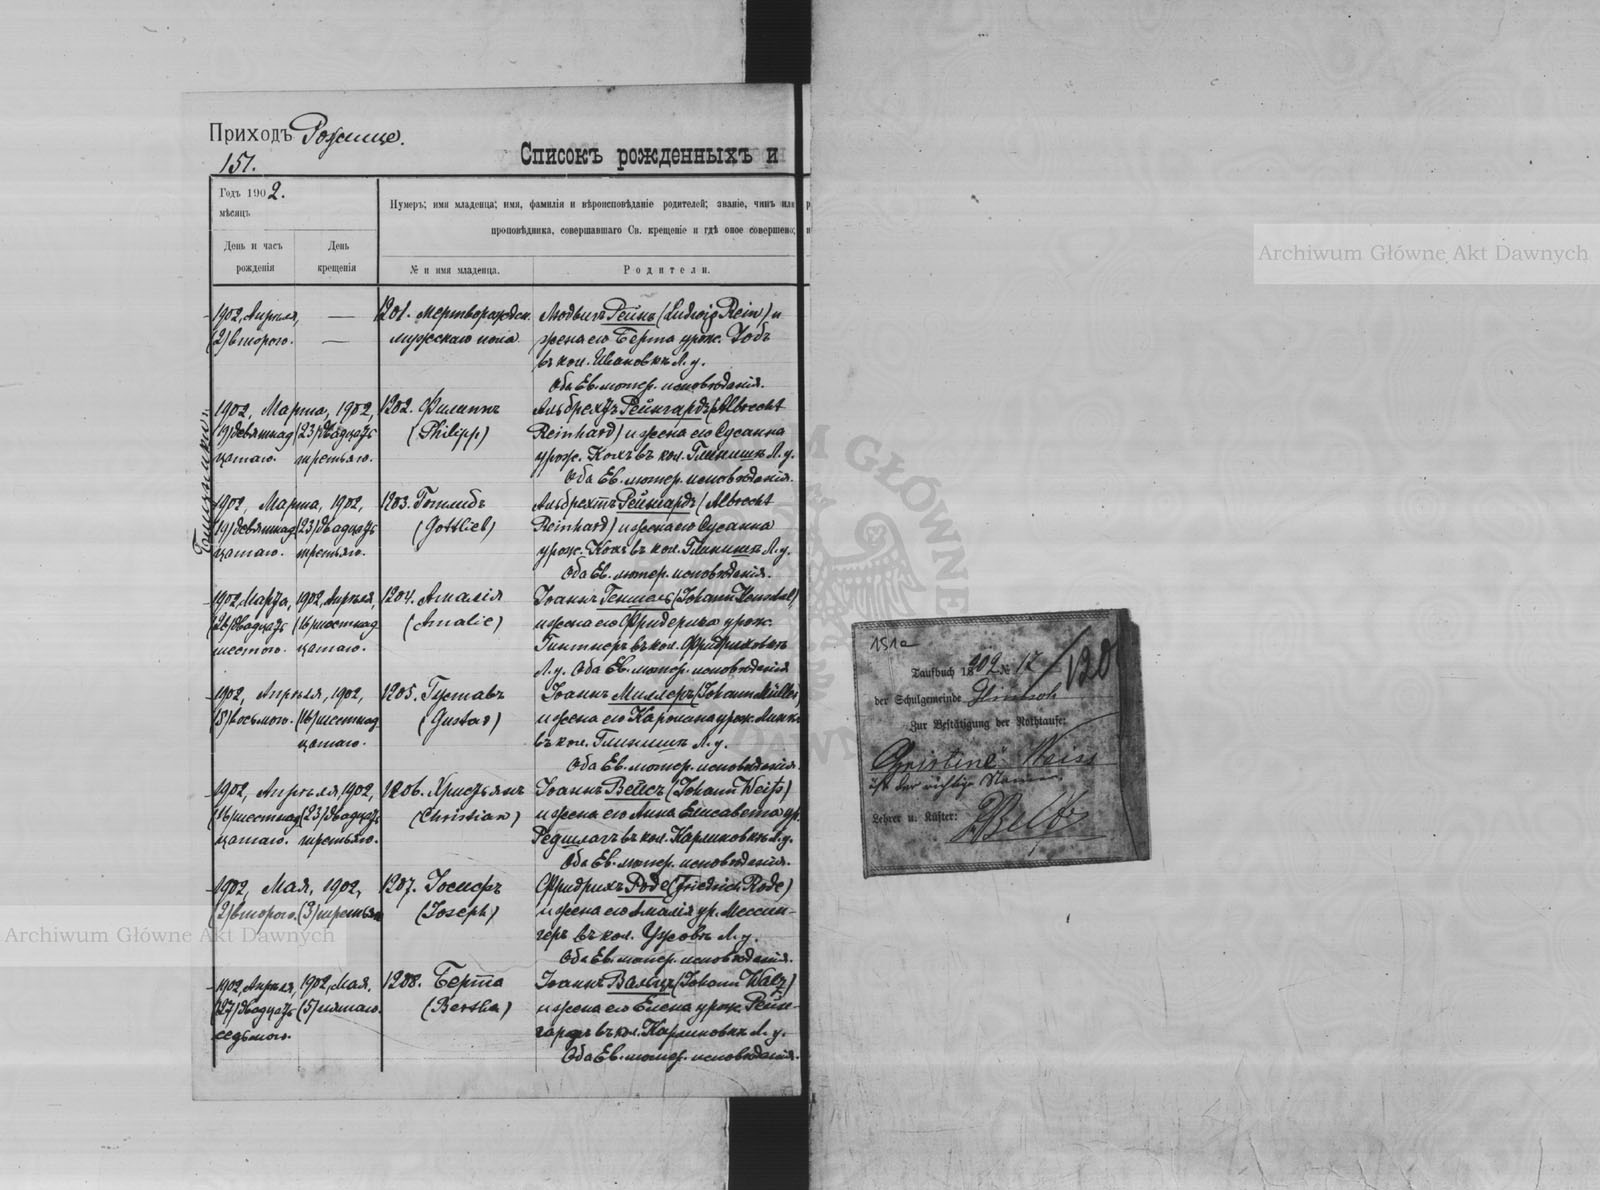 Приходъ Рожище.
151.
Списокъ рожденныхъ и
Годъ 1902.
мѣсяцъ
Нумеръ; имя младенца; имя, фамилія и вѣроисповѣданіе родителей; званіе, чинъ или
проповѣдника, совершавшаго Св. крещеніе и гдѣ оное совершено;
День и часъ рожденія
День крещенія
№ и имя младенца.
Родители.
1902, Апрѣля,
(2) второго.
—
—
1201. Мертворожден.
мужскаго пола
Людвигъ Рейнъ (Ludwig Rein) и
жена его Берта урож. Йобъ
въ кол. Ивановкѣ Л. у.
Оба Ев. лютер. исповѣданія.
Близнецы
1902, Марта, 1902,
(19) девятнад (23) двадцать
цатаго. третьяго.
1202. Филиппъ
(Philipp)
Альбрехтъ Рейнгардъ (Albrecht
Reinhard) и жена его Сусанна
урож. Кохъ въ кол. Глинишѣ Л. у.
Оба Ев. лютер. исповѣданія.
1902, Марта, 1902,
(19) девятнад (23) двадцать
цатаго. третьяго.
1203. Готлибъ
(Gottlieb)
Альбрехтъ Рейнгардъ (Albrecht
Reinhard) и жена его Сусанна
урож. Кохъ въ кол. Глинишѣ Л. у.
Оба Ев. лютер. исповѣданія.
1902, Марта, 1902, Апрѣля,
(26) двадцать (16) шестнад
шестого. цатаго.
1204. Амалія
(Amalie)
Іоаннъ Геншель (Johann Henschel)
и жена его Фридерика урож.
Гинтнеръ въ кол. Фридриховкѣ
Л. у. Оба Ев. лютер. исповѣданія
1902, Апрѣля, 1902,
(8) восьмого. (16) шестнад
цатаго.
1205. Густавъ
(Gustav)
Іоаннъ Миллеръ (Johann Müller)
и жена его Каролина урож. Линкъ
въ кол. Глинишѣ Л. у.
Оба Ев. лютер. исповѣданія.
1902, Апрѣля, 1902,
(16) шестнад (23) двадцать
цатаго. третьяго.
1206. Христьянъ
(Christian)
Іоаннъ Вейсъ (Johann Weiß)
и жена его Анна Елисавета ур.
Редшлагъ въ кол. Карлиновкѣ Л. у.
Оба Ев. лютер. исповѣданія.
1902, Мая, 1902,
(2) второго. (3) третьяго
1207. Іосифъ
(Joseph)
Фридрихъ Роде (Friedrich Rode)
и жена его Амалія ур. Мессин-
геръ въ кол. Ужовѣ Л. у.
Оба Ев. лютер. исповѣданія.
1902, Апрѣля, 1902, Мая,
(27) двадцать (5) пятаго.
седьмого.
1208. Берта
(Bertha)
Іоаннъ Вальцъ (Johann Walz)
и жена его Елена урож. Рейн-
гардъ въ кол. Карлиновкѣ Л. у.
Оба Ев. лютер. исповѣданія.
151a
Taufbuch 1902 № 12/120
der Schulgemeinde
Zur Bestätigung der Nothtaufe:
Christine Weiss
ist der richtige Name
Lehrer u. Küster:
Archiwum Główne Akt Dawnych
Archiwum Główne Akt Dawnych